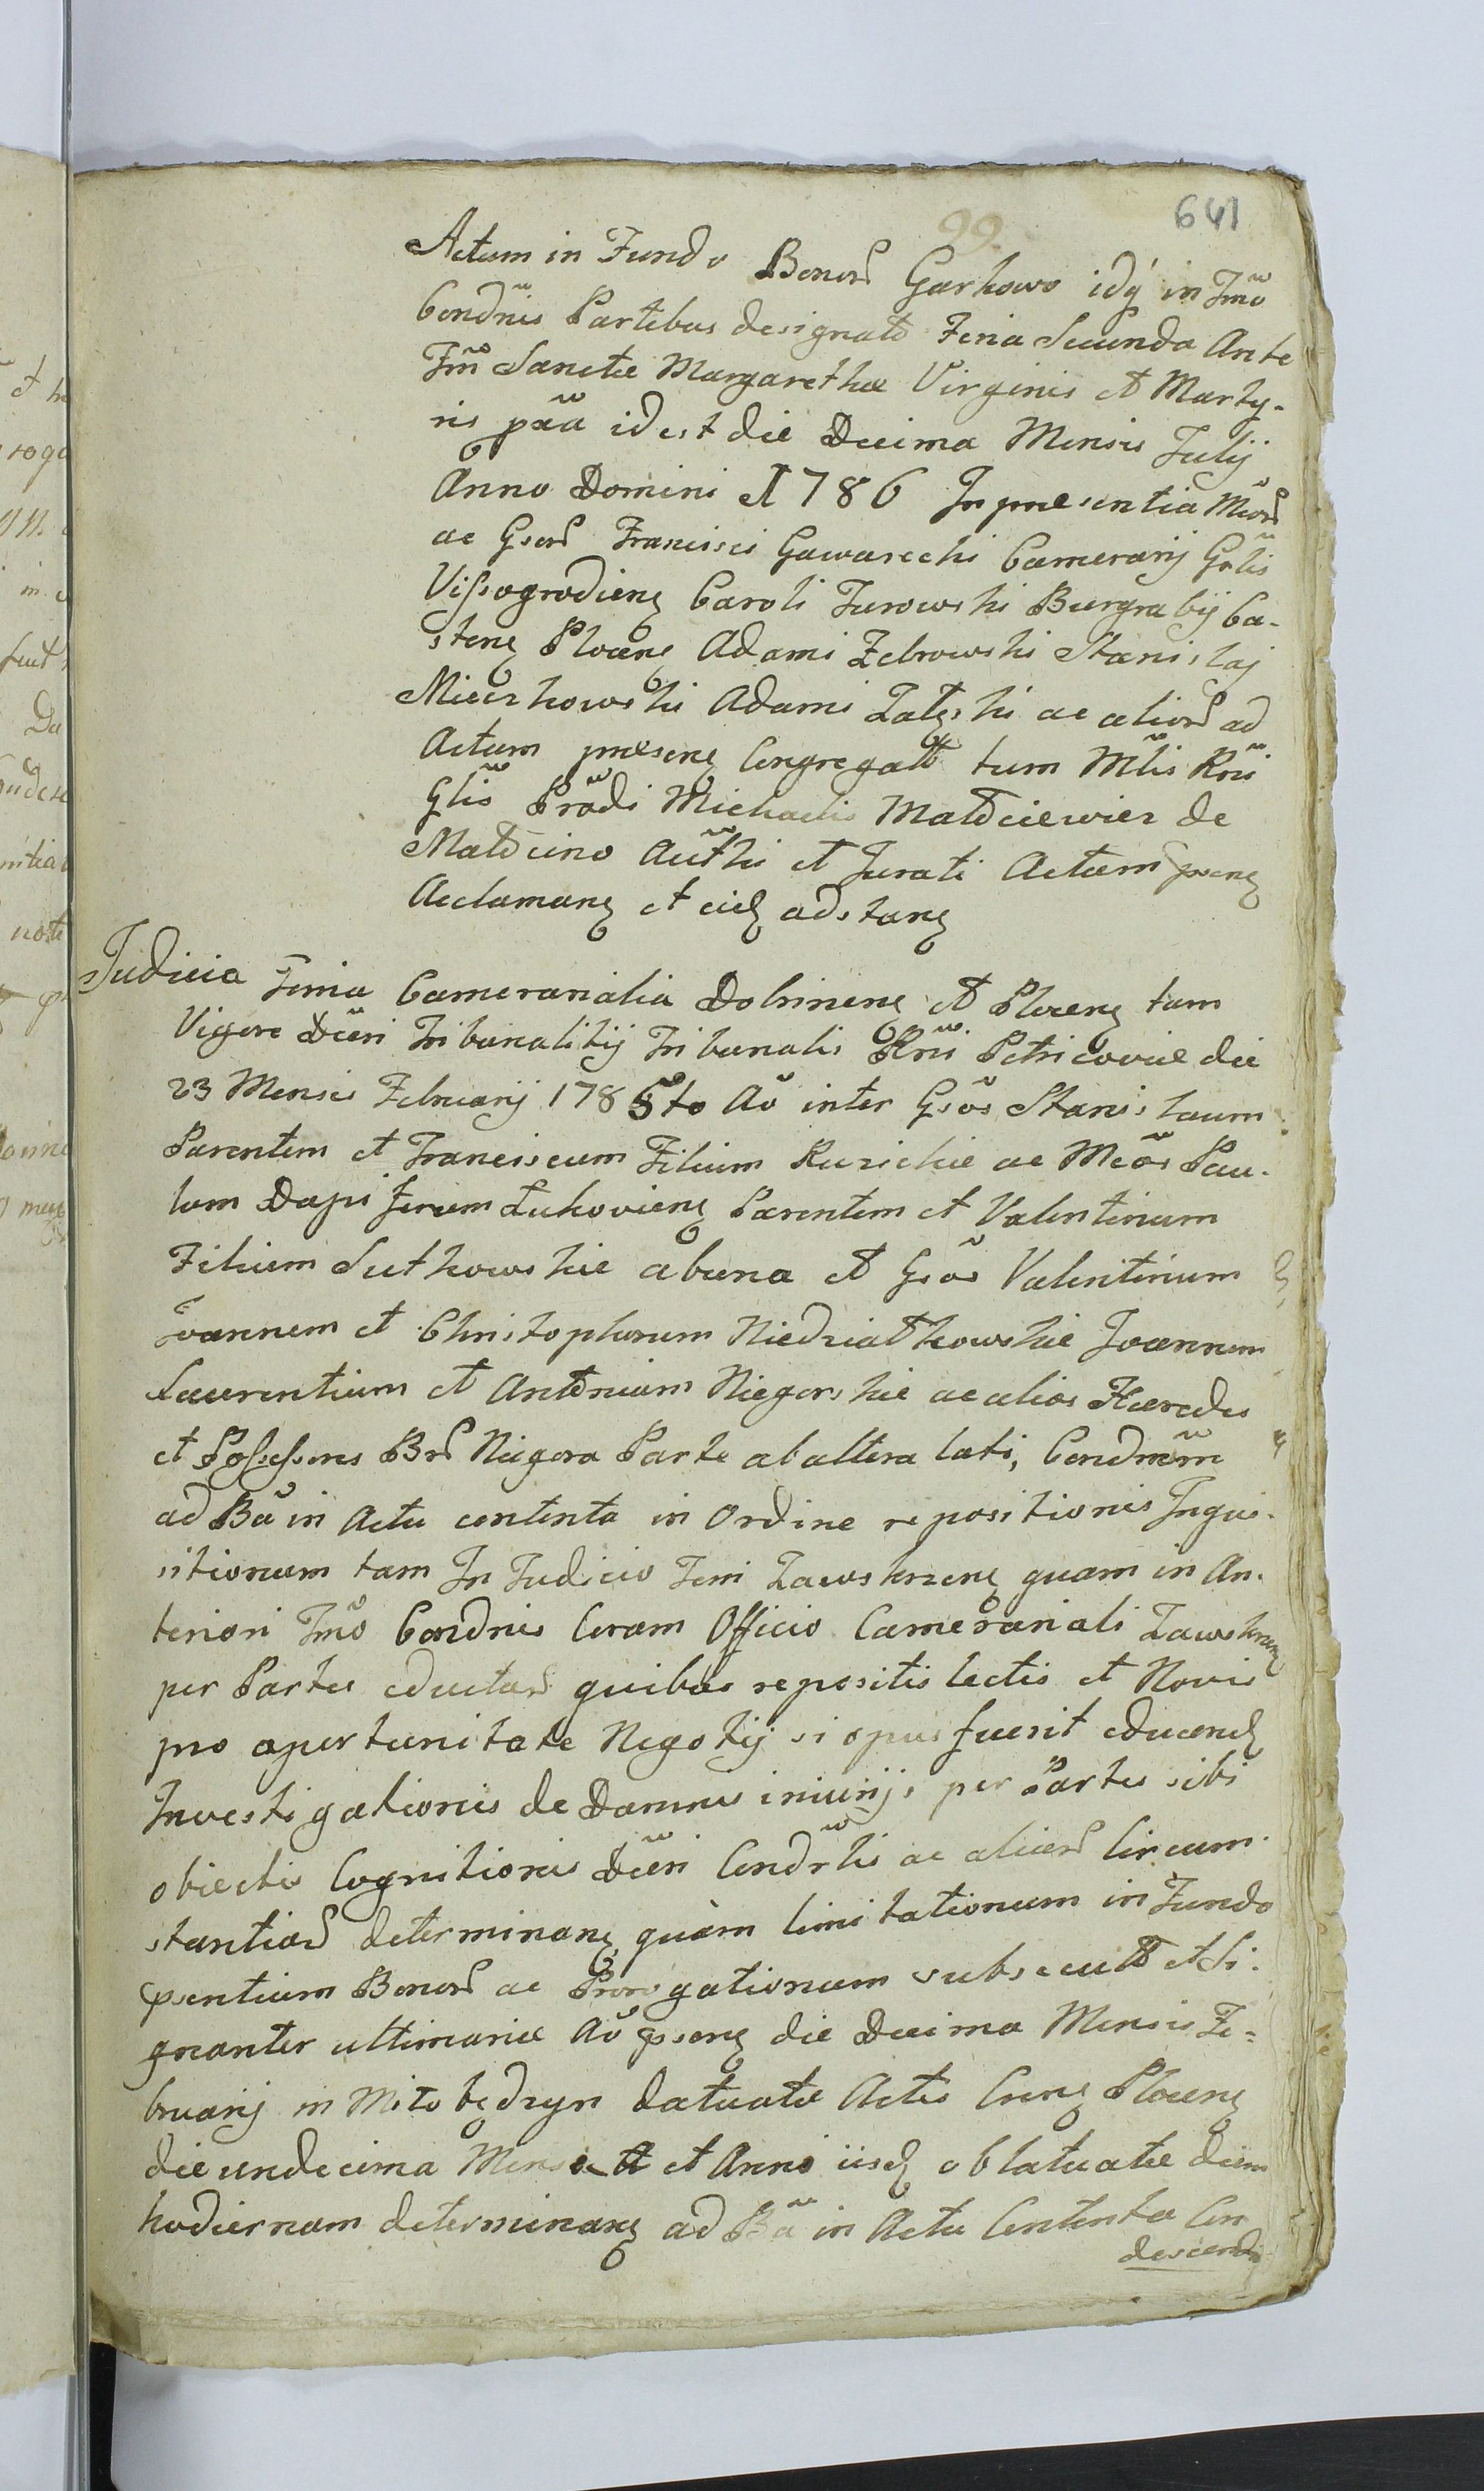 641
99.
Actum in Fundo Bonor̃ Garkowo idq́ in Tm̃o
Condñis Partibus designato Feria Secunda Ante
Fm̃ Sanctæ Margarethæ Virginis et Marty-
ris pr̃a idest die Decima Mensis Julij
Anno Domini 1786 In præsentia Mc̃or̃
ac Gser̃ Francisci Gawarecki Camerarij Grãlis
Vissogrodieñ Caroli Turowski Burgrabij Ca-
streñ Ploceñ Adami Zebrowski Stanislaj
Mieczkowski Adami Zaleski ac alior̃ ad
Actum præseñ Congregatt tum Mtr̃is Rñi
Glĩs Prãdi Michaelis Matociewicz de
Matocino Autĥi et Jurati Actum pseñ
Acclamañ et eid adstañ
Judicia Terria Camerarialia Dobrineñ et Ploceñ tam
Vigore Dc̃ri Tribunalitij Tribunalis Rñi Petricoviæ die
23 Mensis Februarij 1785to Aõ inter Gsõs Stanislaum
Parentem et Franciscum Filium Ruzickie ac Mcõs Pau-
lum Dapiferum Lukovieñ Parentem et Valentinum
Filium Sutkowskie ab una et Gsõs Valentinum
Joannem et Christophorum Niedzialkowskie Joannem
Laurentium et Antonium Niegorskie ac alios Hæredes
et Possessores Br̃ Niegora Parte ab altera lati, Condnem̃
ad Bã in Actu contenta in Ordine repositionis Inqui-
sitionum tam In Judicio Terri Zawskrzeñ quam in An-
teriori Tm̃o Condnis Coram Officio Camerariali Zawskrzeñ
per Partes eductar̃ quibus repositis lectis et Novis
pro oportunitate Negotij si opus fuerit educend
Investigationis de Damnis iniurijs per Partes sibi
obiectis Cognitionis Dc̃ri Condr̃lis ac aliar̃ Circum-
stantiar̃ determinañ, quàm limitationum in Fundo
psentium Bonor̃ ac Prorogationum subsecutt et Si-
gnanter ultimariæ Aõ pseñ die Decima Mensis Fe-
bruarij in Mito będzyn datuatæ Actis Creñ Ploceñ
die undecima Mense et Anno iisd oblatuatæ diem
hodiernam determinañ ad Bã in Actu Contenta Con
descendi